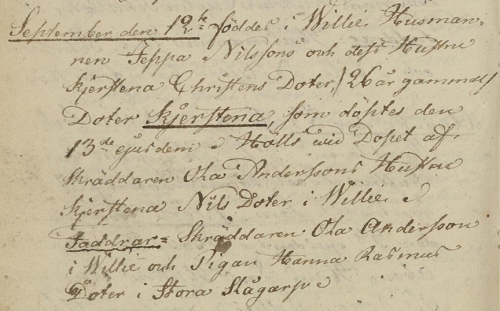 September den 12te föddes i Willie Husman-
nen Jeppa Nilssons och dess Hustru
Kjerstena Christens Doter, /26 år gammal/
Doter Kjerstena, som döptes den
13de ejusdem Hölls wid Dopet af
Skräddaren Ola Anderssons Hustru
Kjerstena Nils Doter i Willie
Faddrar= Skräddaren Ola Andersson
i Willie och Pigan Hanna Rasmus
Doter i Stora Slågarp